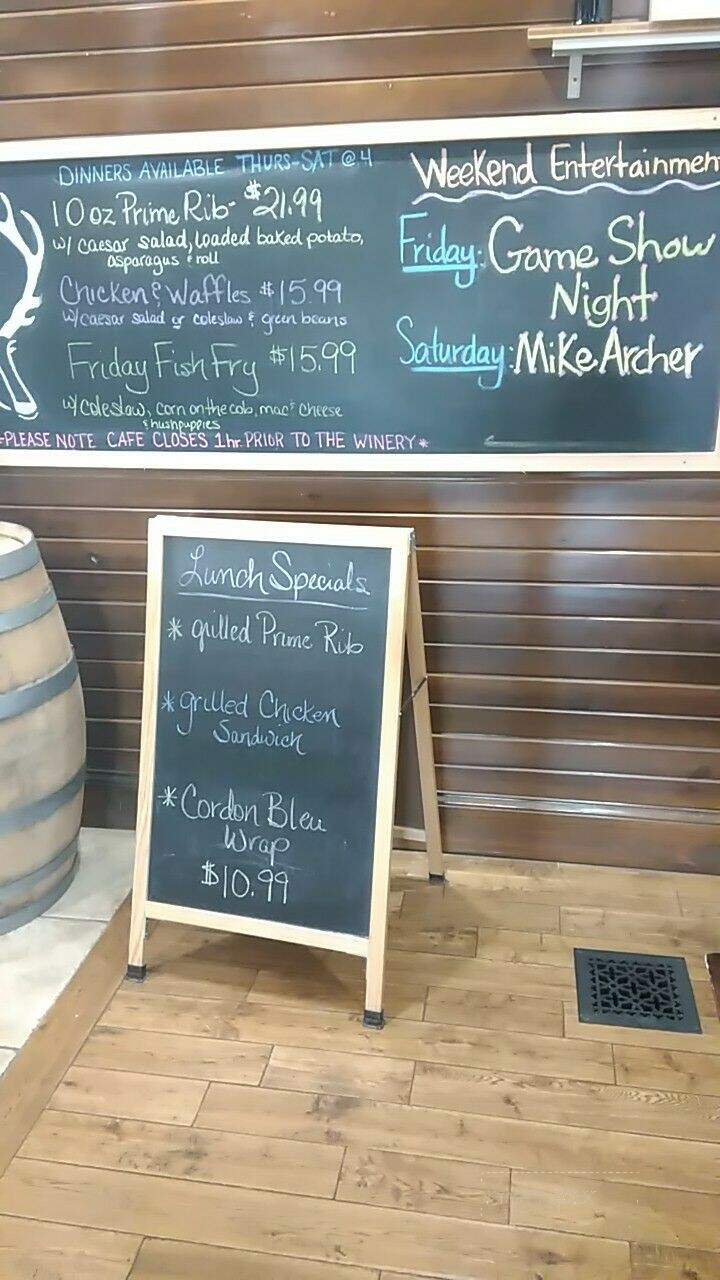 DINNERS AVAILABLE THURS-SAT @ 4
10 oz Prime Rib- $21.99
w/ caesar salad, loaded baked potato,
asparagus & roll
Chicken & Waffles $15.99
w/caesar salad or coleslaw & green beans
Friday Fish Fry $15.99
w/ coleslaw, corn on the cob, mac & cheese
& hushpuppies
*PLEASE NOTE CAFE CLOSES 1hr. PRIOR TO THE WINERY*
Weekend Entertainmen
Friday: Game Show
Night
Saturday: Mike Archer
Lunch Specials
* grilled Prime Rib
* grilled Chicken
Sandwich
* Cordon Bleu
Wrap
$10.99